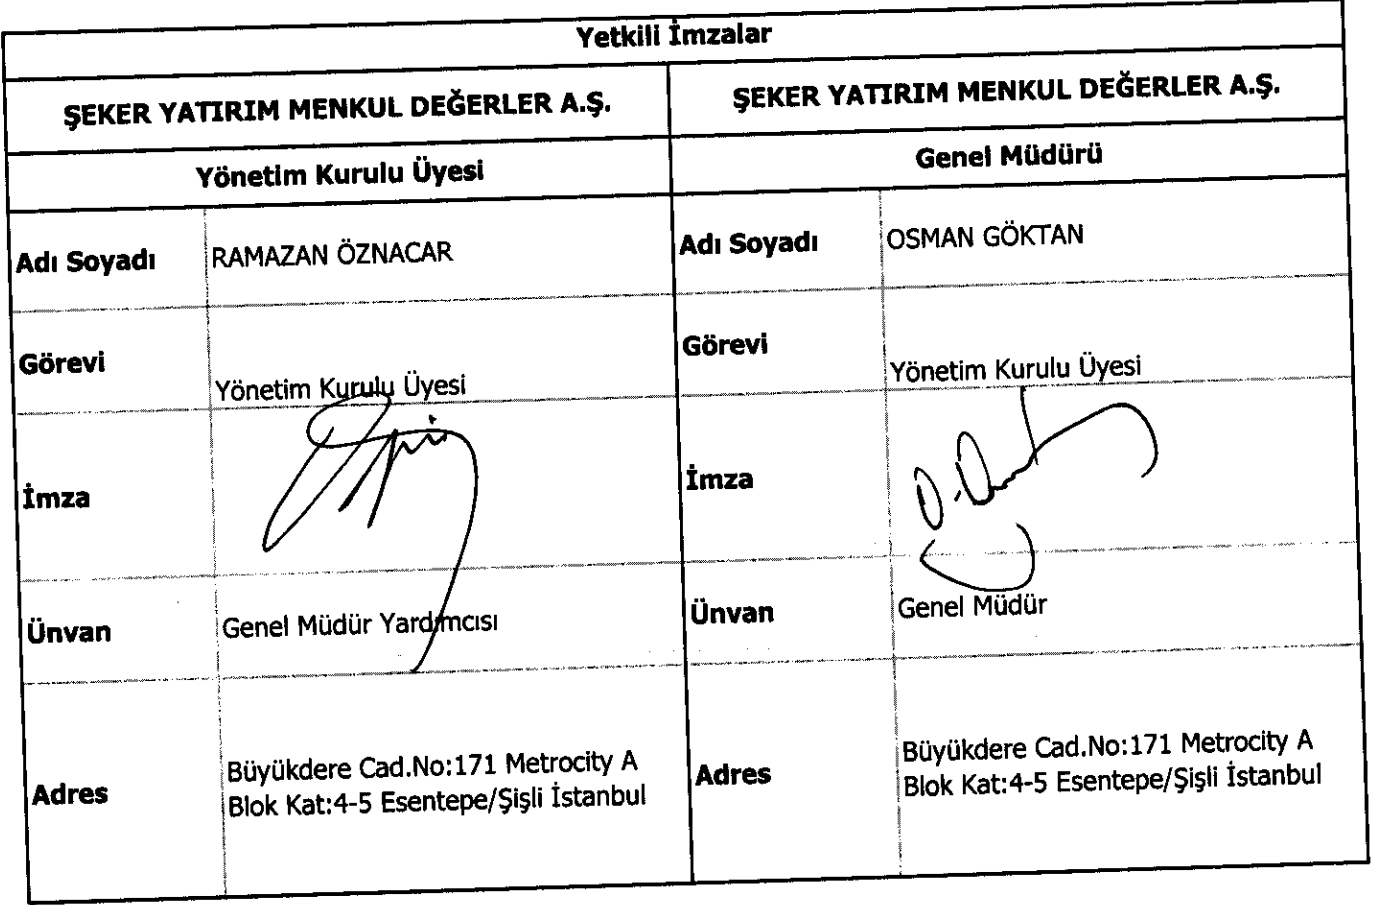 Yetkili İmzalar
ŞEKER YATIRIM MENKUL DEĞERLER A.Ş.
ŞEKER YATIRIM MENKUL DEĞERLER A.Ş.
Yönetim Kurulu Üyesi
Genel Müdürü
Adı Soyadı RAMAZAN ÖZNACAR
Adı Soyadı OSMAN GÖKTAN
Görevi
Yönetim Kurulu Üyesi
Görevi
Yönetim Kurulu Üyesi
İmza
İmza
Ünvan Genel Müdür Yardımcısı
Ünvan Genel Müdür
Adres
Büyükdere Cad.No:171 Metrocity A
Blok Kat:4-5 Esentepe/Şişli İstanbul
Adres
Büyükdere Cad.No:171 Metrocity A
Blok Kat:4-5 Esentepe/Şişli İstanbul